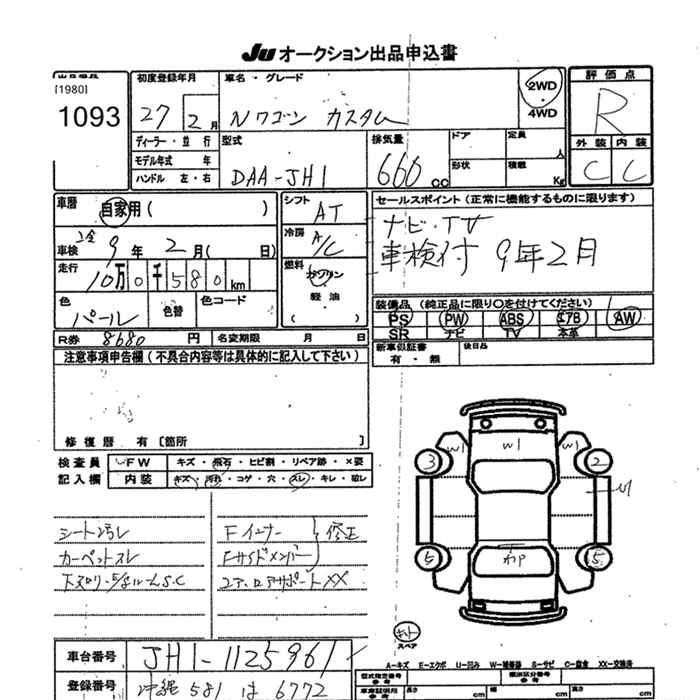 JU オークション出品申込書
[1980]
1093
初度登録年月
27年 2月
車名・グレード
Nワゴン カスタム
2WD
・
4WD
評価点
R
外装 内装
C C
ディーラー・並行
モデル年式 年
ハンドル 左・右
型式
DAA-JH1
排気量
660cc
ドア
形状
定員
人
積載
Kg
車歴
自家用( )
車検
9年 2月( 日)
走行
10万0千580km
色
パール
色替
色コード
シフト
AT
冷房
A/C
燃料
ガソリン
軽油
( )
セールスポイント(正常に機能するものに限ります)
ナビ・TV
車検付 9年2月
装備品(純正品に限り〇を付けてください)
PS PW ABS エアB AW
SR ナビ TV 本革
新車保証書
有・無
後日品
R券 8680円
名変期限 月 日
注意事項申告欄(不具合内容等は具体的に記入して下さい)
修復歴 有 [箇所 ]
検査員
記入欄
FW キズ・飛石・ヒビ割・リペア跡・×要
内装 キズ・汚れ・コゲ・穴・スレ・キレ・破レ
シート汚レ
カーペットスレ
下スリ
S.C
Fインナー
Fサイドメンバー
修正
コア、ロアサポートXX
W1 W1 W1
3 2
5 5
スペア
A-キズ E-エクボ U-凹み W-補修跡 S-サビ C-腐食 XX-交換済
車台番号
JH1-1125961
登録番号
沖縄 581 は 6772
型式指定番号
参考
類別区分番号
参考
車庫証明用
参考
長さ cm
幅 cm
高さ cm